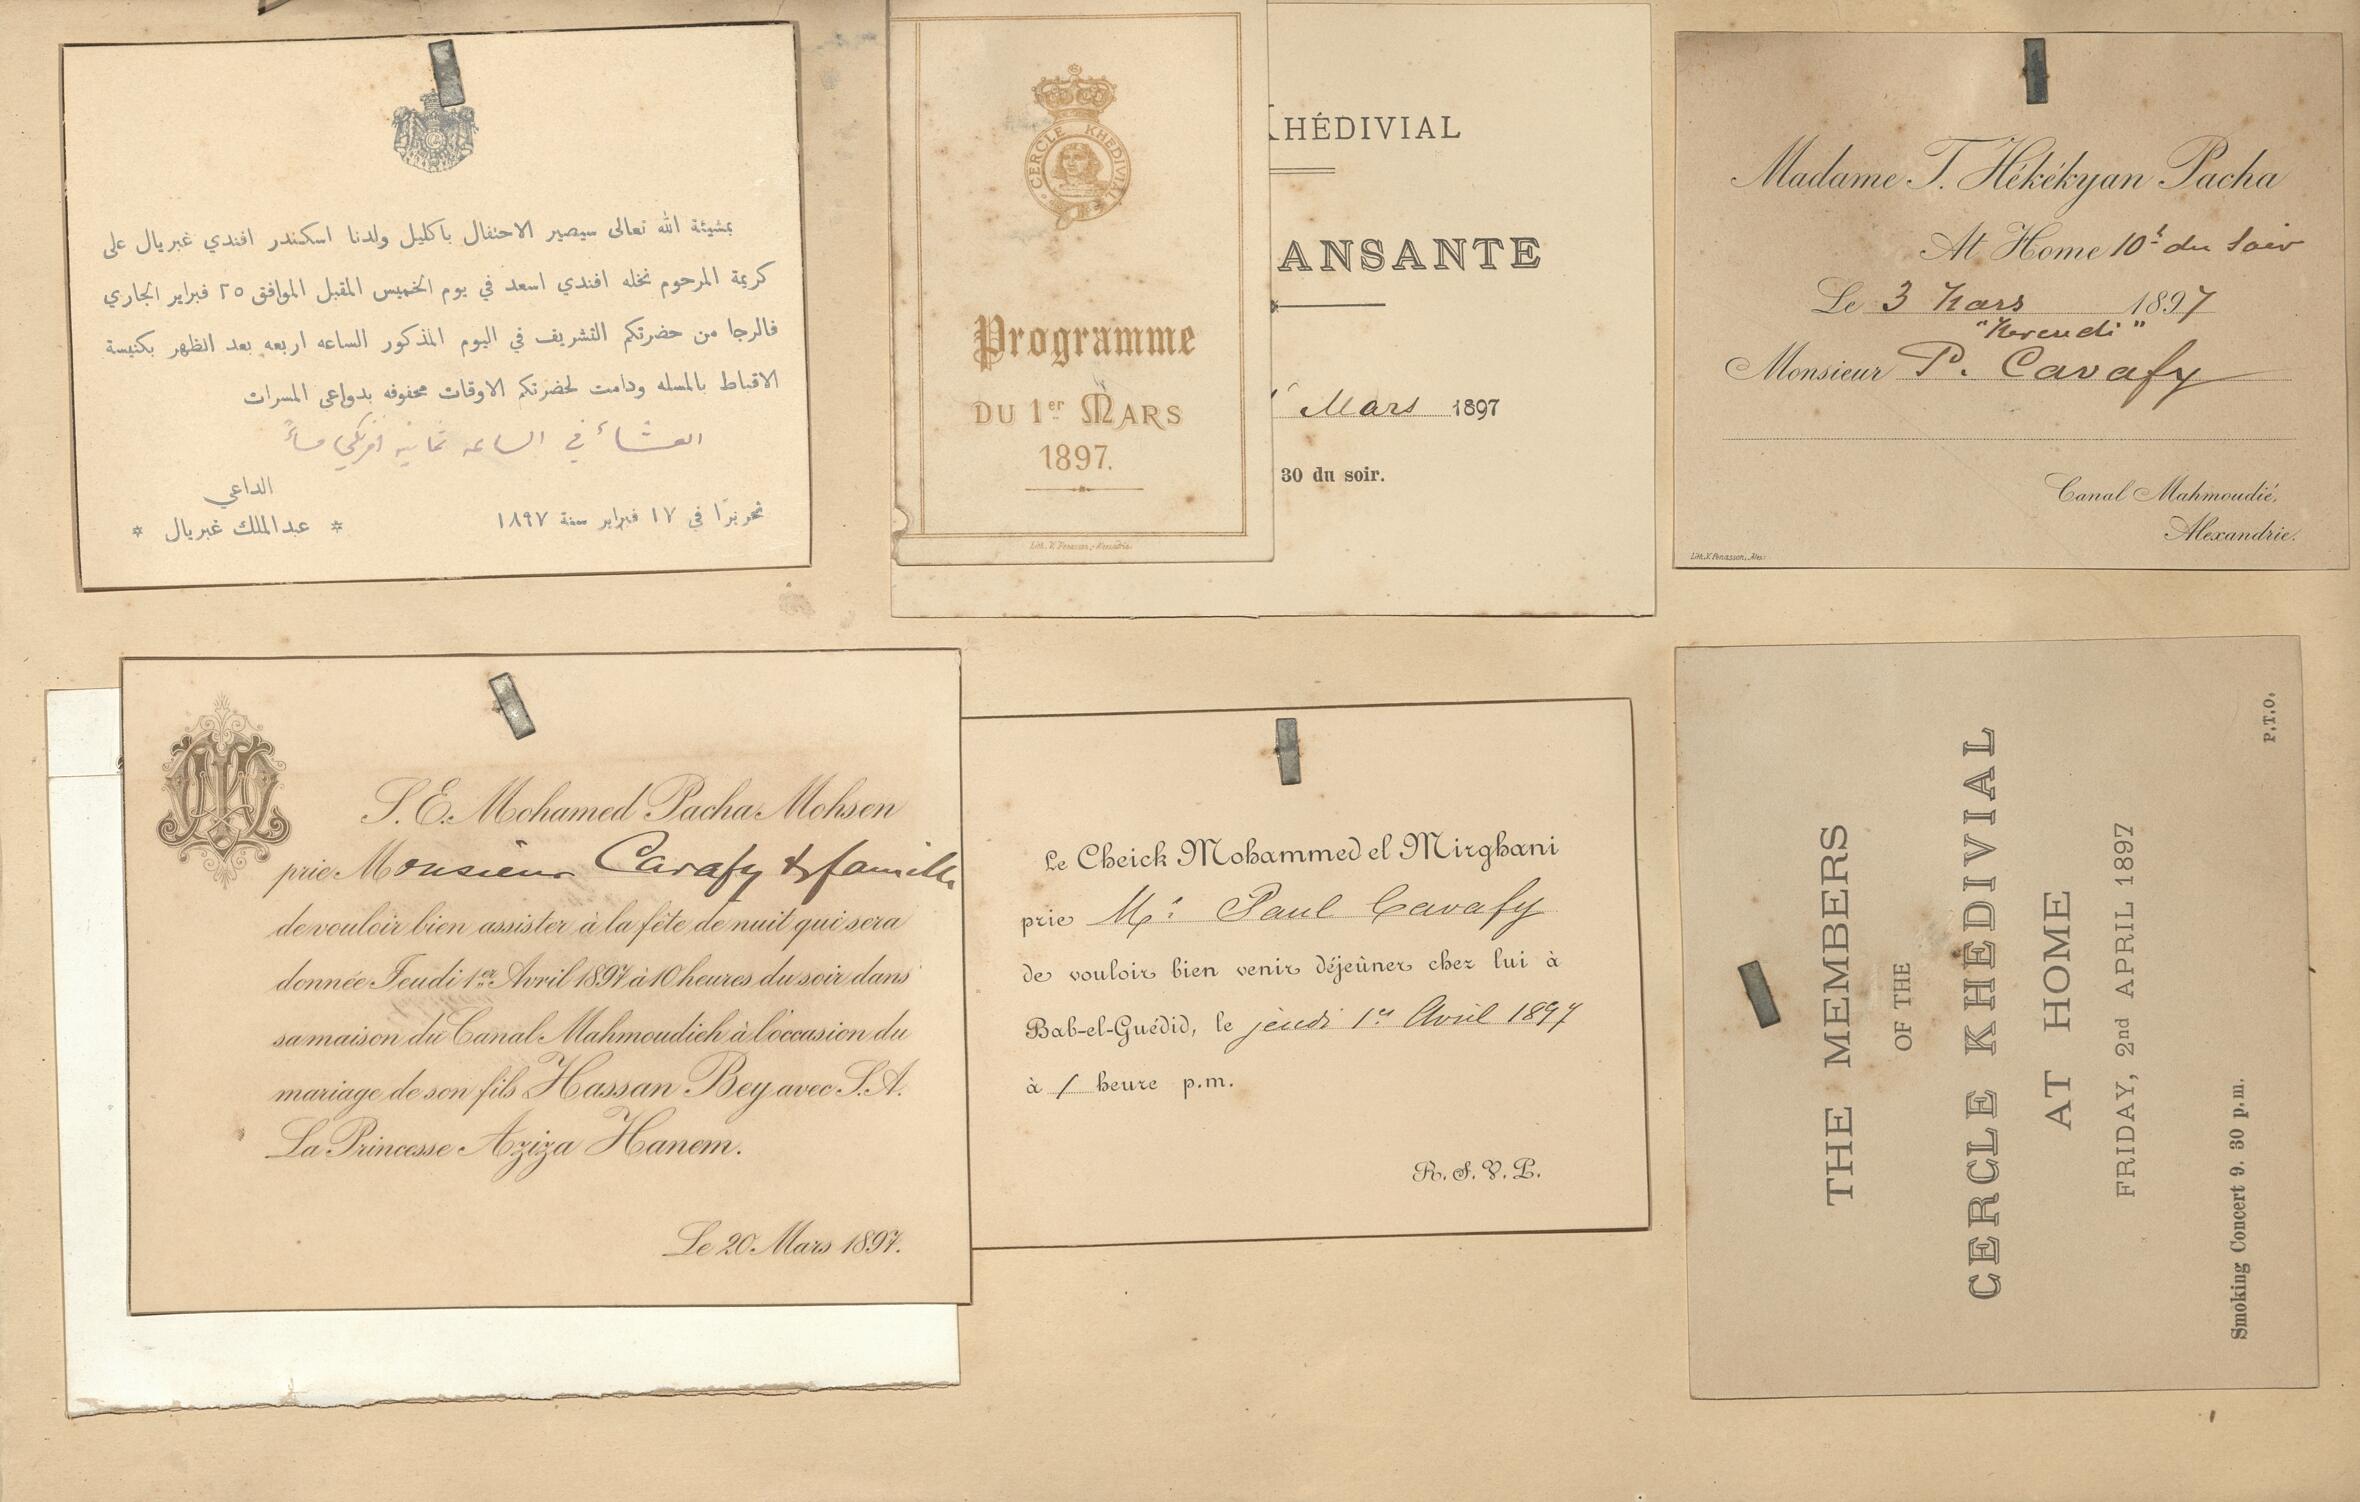 بمشيئة الله تعالى سيصير الاحتفال باكليل ولدنا اسكندر افندي غبريال على
كريمة المرحوم نخله افندي اسعد في يوم الخميس المقبل الموافق ٢٥ فبراير الجاري
فالرجا من حضرتكم التشريف في اليوم المذكور الساعه اربعه بعد الظهر بكنيسة
الاقباط بالمسله ودامت لحضرتكم الاوقات محفوفه بدواعى المسرات
العشاء في الساعه ثمانيه افرنكي مساءً
الداعي
* عبدالملك غبريال *
تحريرًا في ١٧ فبراير سنة ١٨٩٧
CERCLE KHEDIVIAL
Programme
DU 1er MARS
1897.
Lith. V. Penasson, Alexandrie.
KHÉDIVIAL
ANSANTE
Mars 1897
30 du soir.
Madame T. Hékékyan Pacha
At Home 10h du soir
Le 3 Mars 1897
"Mercredi"
Monsieur P. Cavafy
Canal Mahmoudié.
Alexandrie.
Lith. V. Penasson, Alex.
S. E. Mohamed Pacha Mohsen
prie Monsieur Cavafy & famille
de vouloir bien assister à la fête de nuit qui sera
donnée Jeudi 1er Avril 1897 à 10 heures du soir dans
sa maison du Canal Mahmoudieh à l'occasion du
mariage de son fils Hassan Bey avec S. A.
La Princesse Aziza Hanem.
Le 20 Mars 1897.
Le Cheick Mohammed el Mirghani
prie Mr Paul Cavafy
de vouloir bien venir déjeûner chez lui à
Bab-el-Guédid, le jeudi 1er Avril 1897
à 1 heure p.m.
R. S. V. P.
THE MEMBERS
OF THE
CERCLE KHEDIVIAL
AT HOME
FRIDAY, 2nd APRIL 1897
Smoking Concert 9. 30 p.m.
P.T.O.